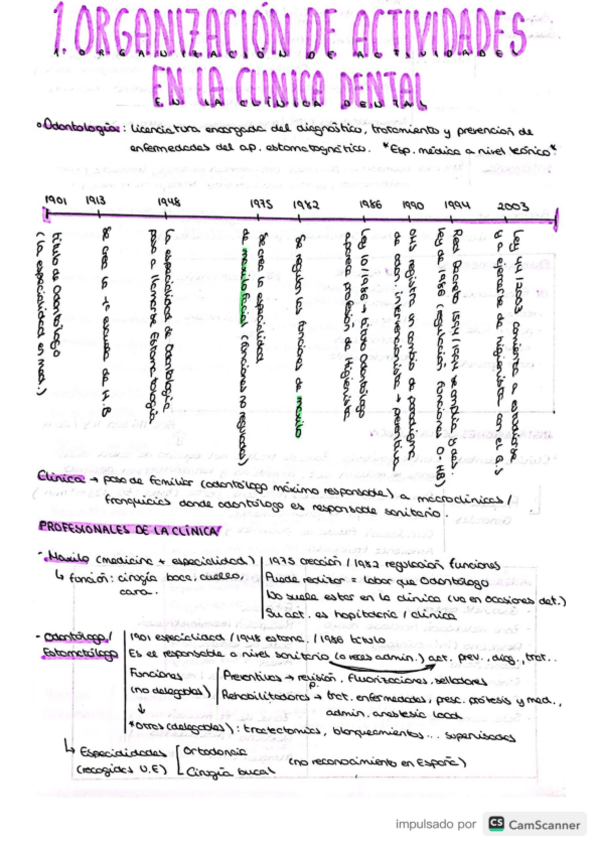 1. ORGANIZACIÓN DE ACTIVIDADES
EN LA CLÍNICA DENTAL
Odontología: licenciatura encargada del diagnóstico, tratamiento y prevención de
enfermedades del ap. estomatognático. *Esp. médica a nivel teórico*
1901 1913 1948 1975 1982 1986 1990 1994 2003
título de Odontólogo
(la especialidad en med.)
Se crea la 1ª escuela de H.B
La especialidad de Odontología
pasa a llamarse Estomatología
Se crea la especialidad
de maxilofacial (funciones no reguladas)
Se regulan las funciones de maxilo
Ley 10/1986 → título Odontólogo
aparece profesión de Higienista
OMS registra un cambio de paradigma
de odon. intervencionista → preventiva
Real Decreto 1594/1994 se amplía y des.
ley de 1986 (regulación funciones O-HB)
Ley 44/2003 comienza a estudiarse
y a ejercerse de higienista con el G.S
Clínica → paso de familiar (odontólogo máximo responsable) a macroclínicas /
franquicias donde odontólogo es responsable sanitario.
PROFESIONALES DE LA CLÍNICA
- Maxilo (medicina + especialidad) | 1975 creación / 1982 regulación funciones
↳ función: cirugía boca, cuello, | Puede realizar = labor que Odontólogo
cara. | No suele estar en la clínica (va en ocasiones det.)
Su act. es hospitalaria / clínica
- Odontólogo/ | 1901 especialidad / 1948 estoma. / 1986 título
Estomatólogo | Es el responsable a nivel sanitario (a veces admin.) act. prev., diag., trat..
Funciones | Preventivas → revisión, fluorizaciones, selladores
(no delegables) | Rehabilitadoras → trat. enfermedades, presc. prótesis y med.,
↓ admin. anestesia local
*Otras (delegables): tartrectomías, blanqueamientos... supervisadas
↳ Especialidades | Ortodoncia
(recogidas U.E) | Cirugía bucal (no reconocimiento en España)
impulsado por CS CamScanner